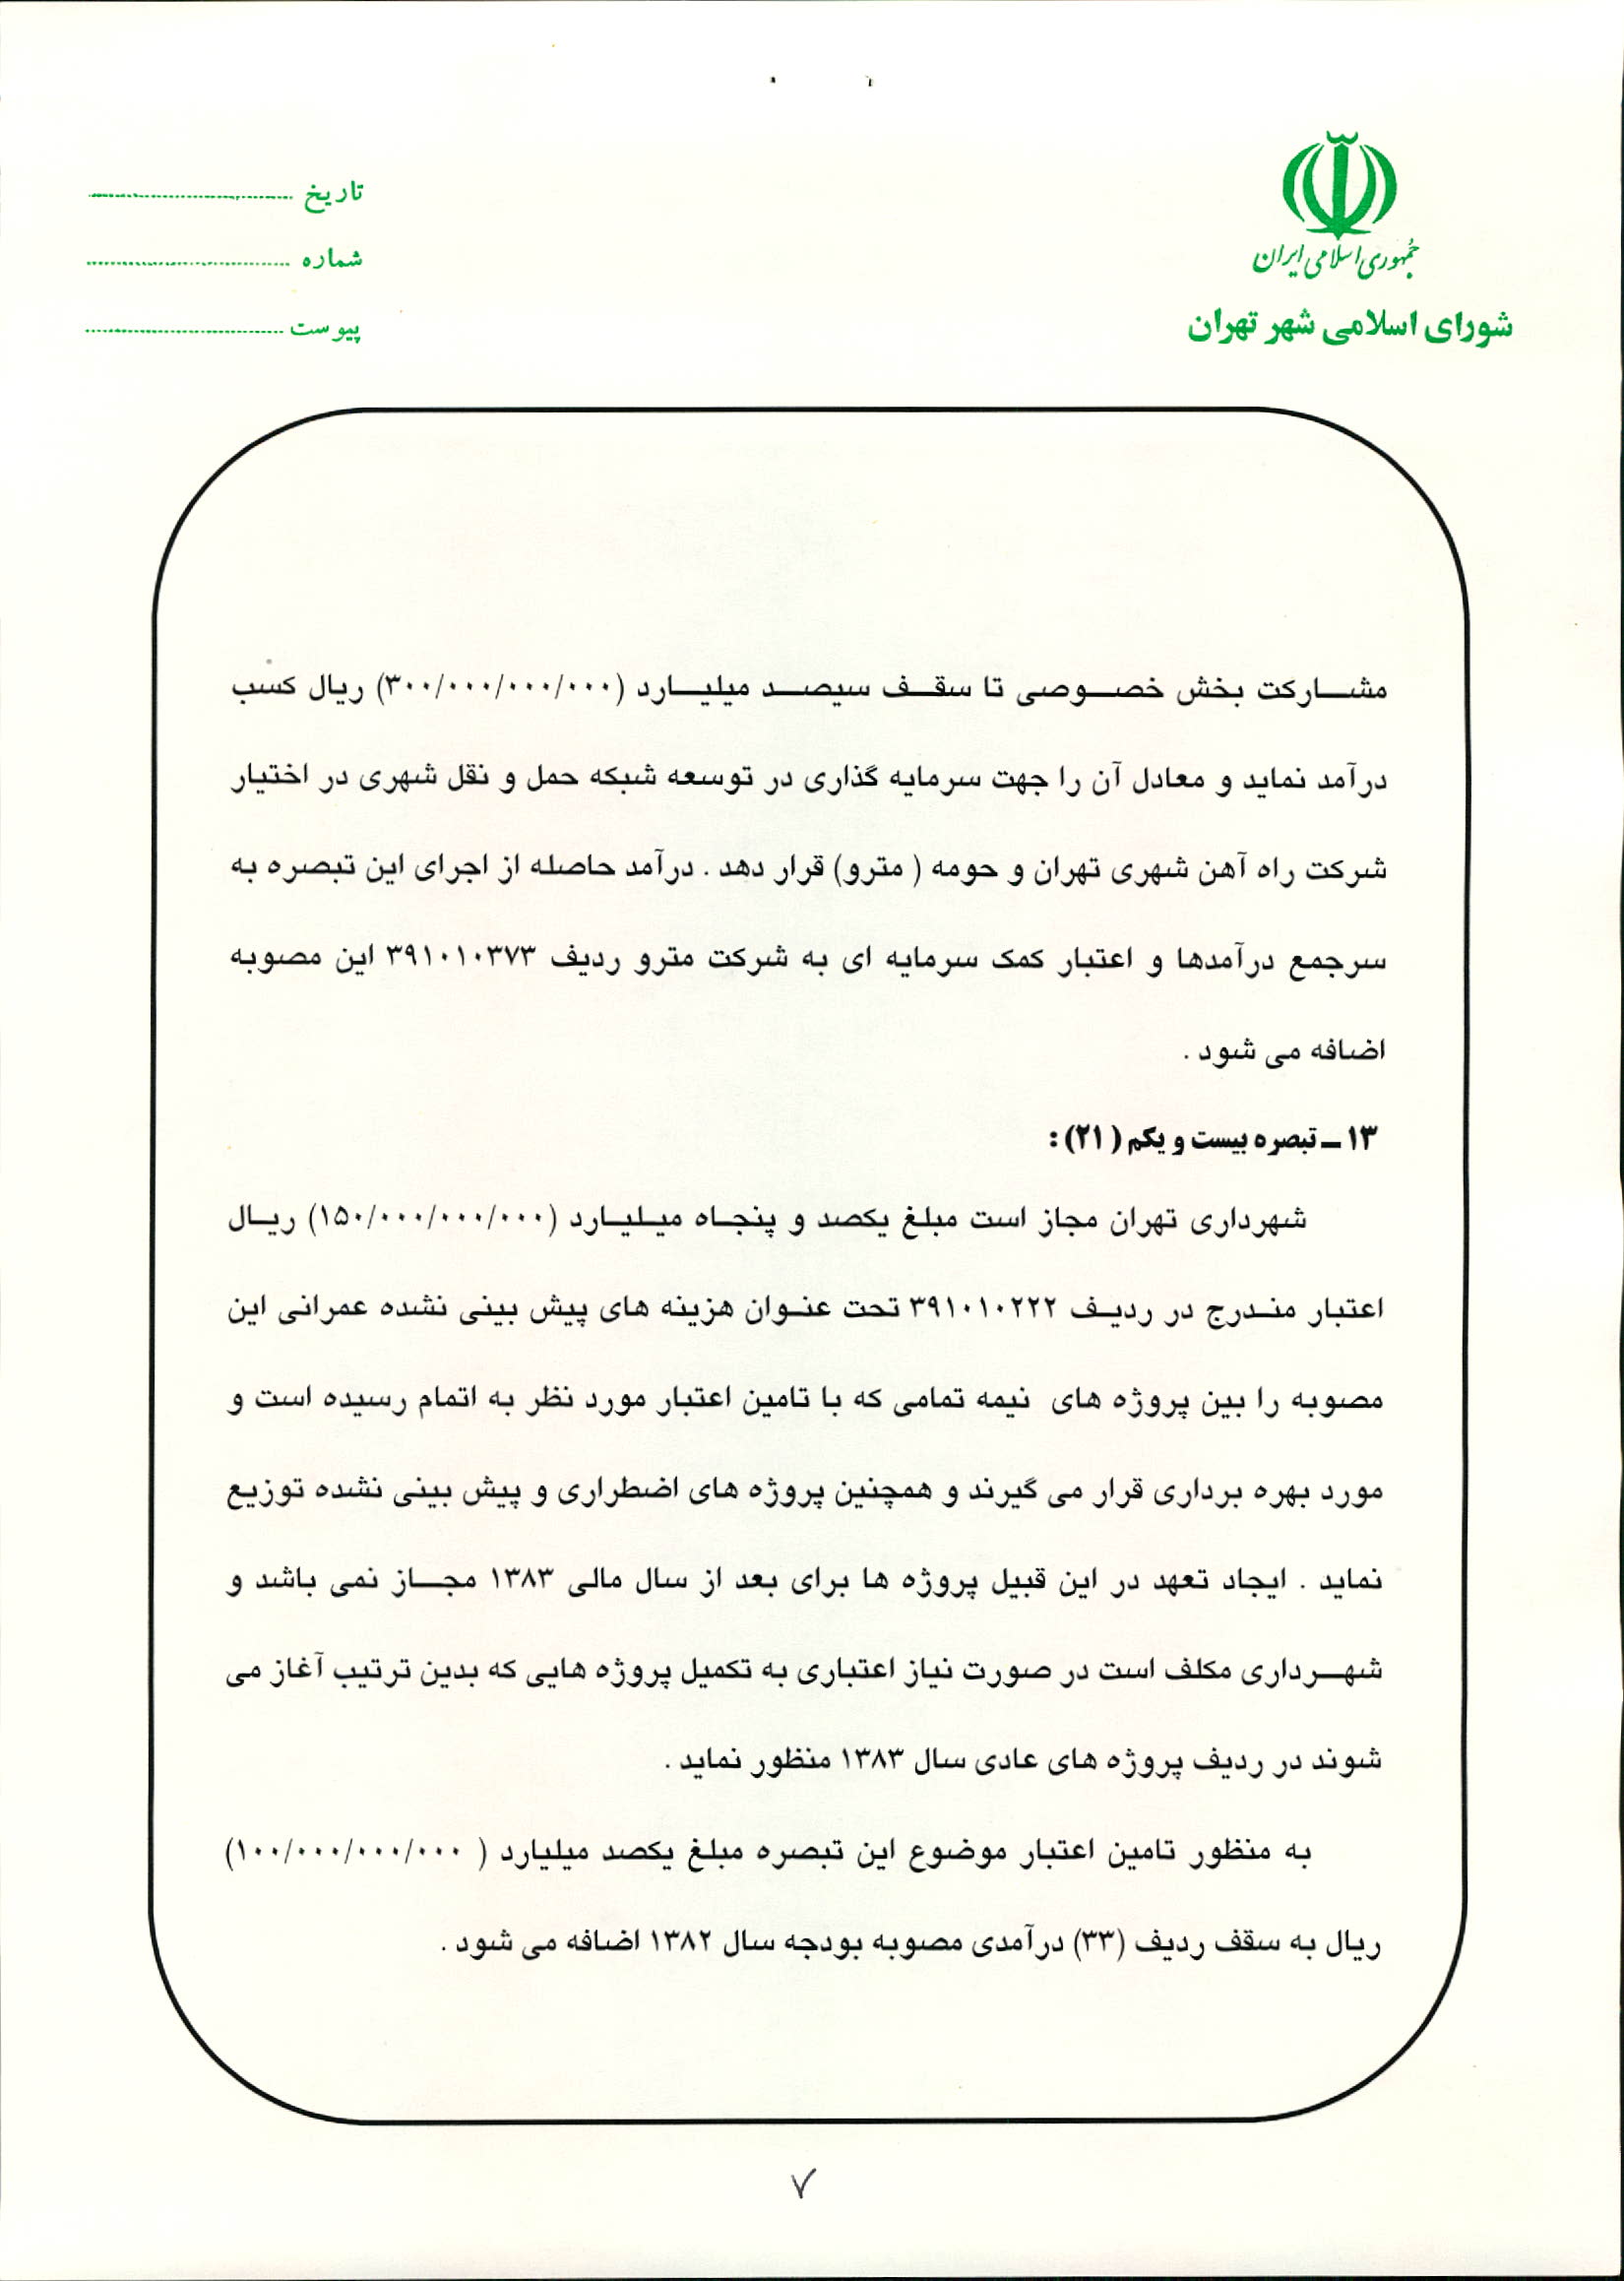 جمهوری اسلامی ایران
شورای اسلامی شهر تهران
تاریخ
شماره
پیوست
مشارکت بخش خصوصی تا سقف سیصد میلیارد (۳۰۰/۰۰۰/۰۰۰/۰۰۰) ریال کسب
درآمد نماید و معادل آن را جهت سرمایه گذاری در توسعه شبکه حمل و نقل شهری در اختیار
شرکت راه آهن شهری تهران و حومه ( مترو) قرار دهد . درآمد حاصله از اجرای این تبصره به
سرجمع درآمدها و اعتبار کمک سرمایه ای به شرکت مترو ردیف ۳۹۱۰۱۰۳۷۳ این مصوبه
اضافه می شود .
۱۳ ـ تبصره بیست و یکم ( ۲۱) :
شهرداری تهران مجاز است مبلغ یکصد و پنجاه میلیارد (۱۵۰/۰۰۰/۰۰۰/۰۰۰) ریال
اعتبار مندرج در ردیف ۳۹۱۰۱۰۲۲۲ تحت عنوان هزینه های پیش بینی نشده عمرانی این
مصوبه را بین پروژه های نیمه تمامی که با تامین اعتبار مورد نظر به اتمام رسیده است و
مورد بهره برداری قرار می گیرند و همچنین پروژه های اضطراری و پیش بینی نشده توزیع
نماید . ایجاد تعهد در این قبیل پروژه ها برای بعد از سال مالی ۱۳۸۳ مجاز نمی باشد و
شهرداری مکلف است در صورت نیاز اعتباری به تکمیل پروژه هایی که بدین ترتیب آغاز می
شوند در ردیف پروژه های عادی سال ۱۳۸۳ منظور نماید .
به منظور تامین اعتبار موضوع این تبصره مبلغ یکصد میلیارد ( ۱۰۰/۰۰۰/۰۰۰/۰۰۰)
ریال به سقف ردیف (۳۳) درآمدی مصوبه بودجه سال ۱۳۸۲ اضافه می شود .
۷